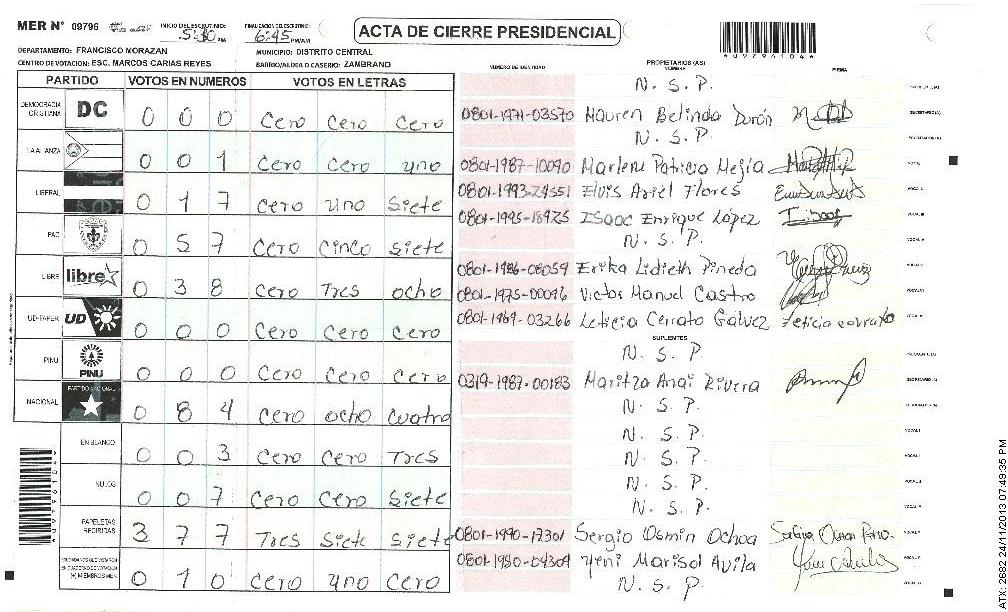 MER N° 09796 INICIO DEL ESCRUTINIO: 5:30 PM FINALIZACION DEL ESCRUTINIO: 6:45 PM/AM
ACTA DE CIERRE PRESIDENCIAL
DEPARTAMENTO: FRANCISCO MORAZAN MUNICIPIO: DISTRITO CENTRAL
CENTRO DE VOTACION: ESC. MARCOS CARIAS REYES BARRIO/ALDEA O CASERIO: ZAMBRANO
NUMERO DE IDENTIDAD PROPIETARIOS (AS) NOMBRE FIRMA
PARTIDO VOTOS EN NUMEROS VOTOS EN LETRAS
DEMOCRACIA CRISTIANA DC 0 0 0 Cero Cero Cero
LA ALIANZA 0 0 1 Cero Cero uno
LIBERAL 0 1 7 Cero uno Siete
PAC 0 5 7 Cero Cinco Siete
LIBRE libre 0 3 8 Cero Tres ocho
UD-FAPER UD 0 0 0 Cero Cero Cero
PINU PINU 0 0 0 Cero Cero Cero
NACIONAL PARTIDO NACIONAL 0 8 4 Cero ocho Cuatro
EN BLANCO 0 0 3 Cero Cero Tres
NULOS 0 0 7 Cero Cero Siete
PAPELETAS RECIBIDAS 3 7 7 Tres Siete Siete
CIUDADANOS QUE VOTARON EN CUADERNO DE VOTACION (+) MIEMBROS MER 0 1 0 Cero uno Cero
N. S. P.
0801-1971-03570 Mauren Belinda Durón
N. S. P.
0801-1987-10090 Marlene Patricia Mejía
0801-1993-24551 Elvis Ariel Flores
0801-1995-18925 Isaac Enrique López
N. S. P.
0801-1986-08059 Erika Lidieth Pineda
0801-1975-00096 Victor Manuel Castro
0801-1969-03266 Leticia Cerrato Gálvez
SUPLENTES
N. S. P
0319-1987-00183 Maritza Anai Rivera
N. S. P.
N. S. P.
N. S. P.
N. S. P.
N. S. P.
0801-1990-17301 Sergio Osmin Ochoa
0801-1980-04304 Yeni Marisol Avila
N. S. P
ATX: 2682 24/11/2013 07:49:35 PM